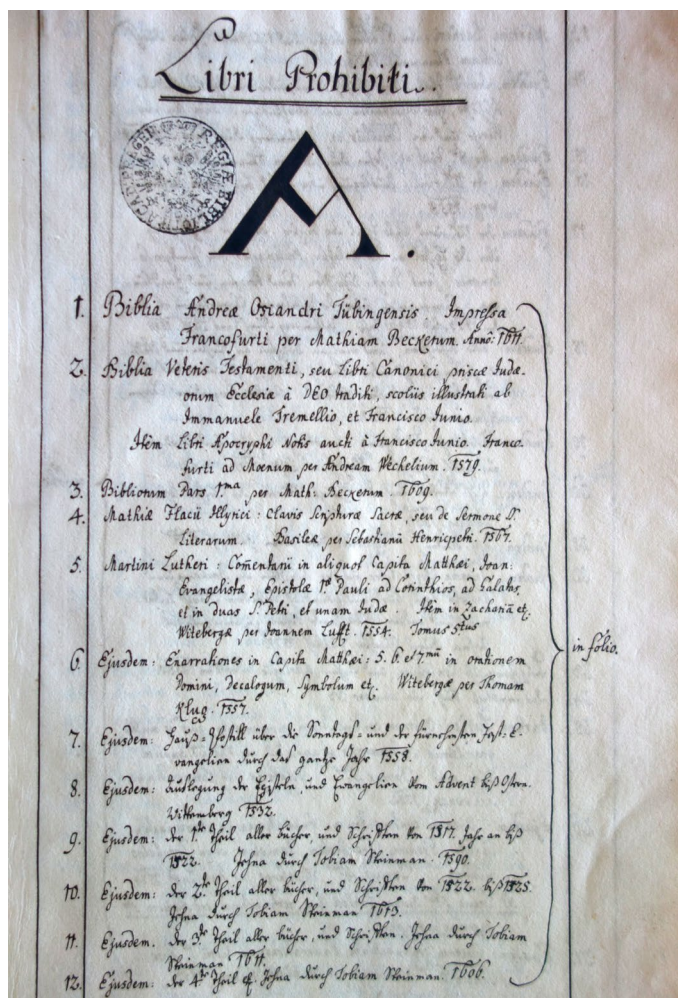 Libri Prohibiti.
A.
1. Biblia Andreæ Osiandri Tübingensis. Impressa
Francofurti per Mathiam Beckerum. Anno: 1611.
2. Biblia Veteris Testamenti, seu Libri Canonici priscæ Judæ-
orum Ecclesiæ à DEO traditi, scoliis illustrati ab
Immanuele Tremellio, et Francisco Junio.
Item Libri Apocryphi Notis aucti à Francisco Junio. Franco-
furti ad Moenum per Andream Wechelium. 1579.
3. Bibliorum Pars 1.ma per Math: Beckerum. 1609.
4. Mathiæ Flacii Illyrici: Clavis Scripturæ Sacræ, seu de Sermone S.
Literarum. Basileæ per Sebastianũ Henricpetri. 1567.
5. Martini Lutheri: Com̃entarii in aliquot Capita Matthæi, Joan:
Evangelistæ, Epistolæ 1æ Pauli ad Corinthios, ad Galatas,
et in duas S. Petri, et unam Judæ. Item in Zachariã etc.
Witebergæ per Joannem Lufft. 1554. Tomus 5tus
6. Ejusdem: Enarrationes in Capita Matthæi: 5. 6. et 7mũ in orationem
Domini, Decalogum, Symbolum etc. Witebergæ per Thomam
Klug. 1557.
7. Ejusdem: Hauß-Postill über die Sonntags- und der fürnehmsten Fest-E-
vangelien durch das gantze Jahr 1558.
8. Ejusdem: Auslegung der Episteln, und Evangelien vom Advent biß Ostern.
Wittemberg 1532.
9. Ejusdem: der 1te Theil aller bücher, und Schrifften von 1517. Jahr an biß
1522. Jehna durch Tobiam Steinman. 1590.
10. Ejusdem: der 2te Theil aller bücher, und Schrifften von 1522. biß 1525.
Jehna durch Tobiam Steinman 1613.
11. Ejusdem. der 3te Theil aller bücher, und Schrifften. Jehna durch Tobiam
Steinman 1611.
12. Ejusdem: der 4te Theil etc. Jehna durch Tobiam Steinman. 1606.
in folio.